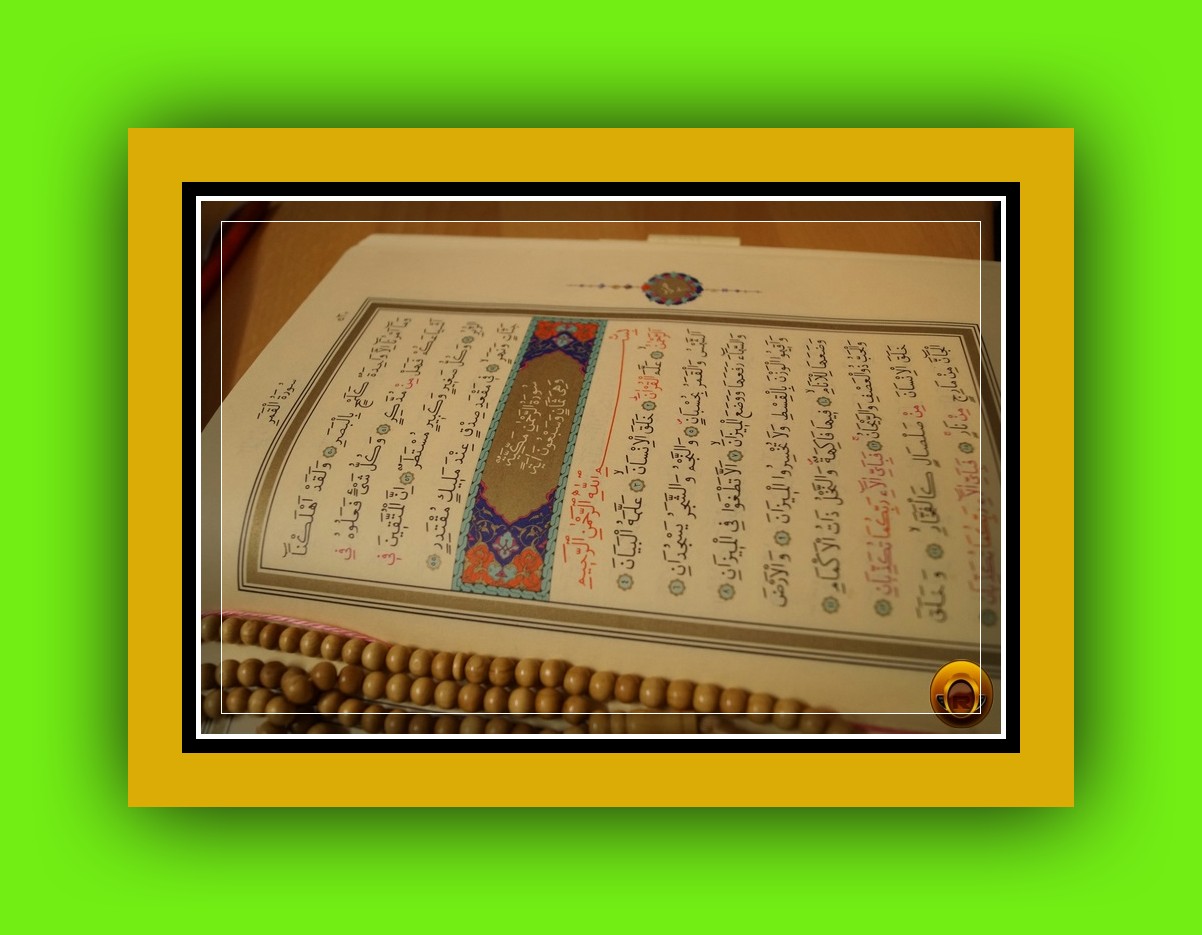 سُورَةُ الْقَمَرِ
وَلَقَدْ اَهْلَكْنَٓا
بِالْبَصَرِ
وَكُلُّ شَيْءٍ فَعَلُوهُ فِي
مِنْ مُدَّكِرٍ
اِنَّ الْمُتَّقِينَ فِي
وَكُلُّ صَغِيرٍ وَكَبِيرٍ مُسْتَطَرٌ
فِي مَقْعَدِ صِدْقٍ عِنْدَ مَلِيكٍ مُقْتَدِرٍ
جَنَّاتٍ وَنَهَرٍ
سُورَةُ الرَّحْمٰنِ
بِسْمِ اللّٰهِ الرَّحْمٰنِ الرَّحِيمِ
اَلرَّحْمٰنُ عَلَّمَ الْقُرْاٰنَ خَلَقَ الْاِنْسَانَ عَلَّمَهُ الْبَيَانَ
اَلشَّمْسُ وَالْقَمَرُ بِحُسْبَانٍ وَالنَّجْمُ وَالشَّجَرُ يَسْجُدَانِ
وَالسَّمَٓاءَ رَفَعَهَا وَوَضَعَ الْمِيزَانَ اَلَّا تَطْغَوْا فِي الْمِيزَانِ
وَاَقِيمُوا الْوَزْنَ بِالْقِسْطِ وَلَا تُخْسِرُوا الْمِيزَانَ وَالْاَرْضَ
وَضَعَهَا لِلْاَنَامِ فِيهَا فَاكِهَةٌ وَالنَّخْلُ ذَاتُ الْاَكْمَامِ
وَالْحَبُّ ذُو الْعَصْفِ وَالرَّيْحَانُ فَبِاَيِّ اٰلَٓاءِ رَبِّكُمَا تُكَذِّبَانِ
خَلَقَ الْاِنْسَانَ مِنْ صَلْصَالٍ كَالْفَخَّارِ وَخَلَقَ
الْجَٓانَّ مِنْ مَارِجٍ مِنْ نَارٍ فَبِاَيِّ اٰلَٓاءِ رَبِّكُمَا تُكَذِّبَانِ